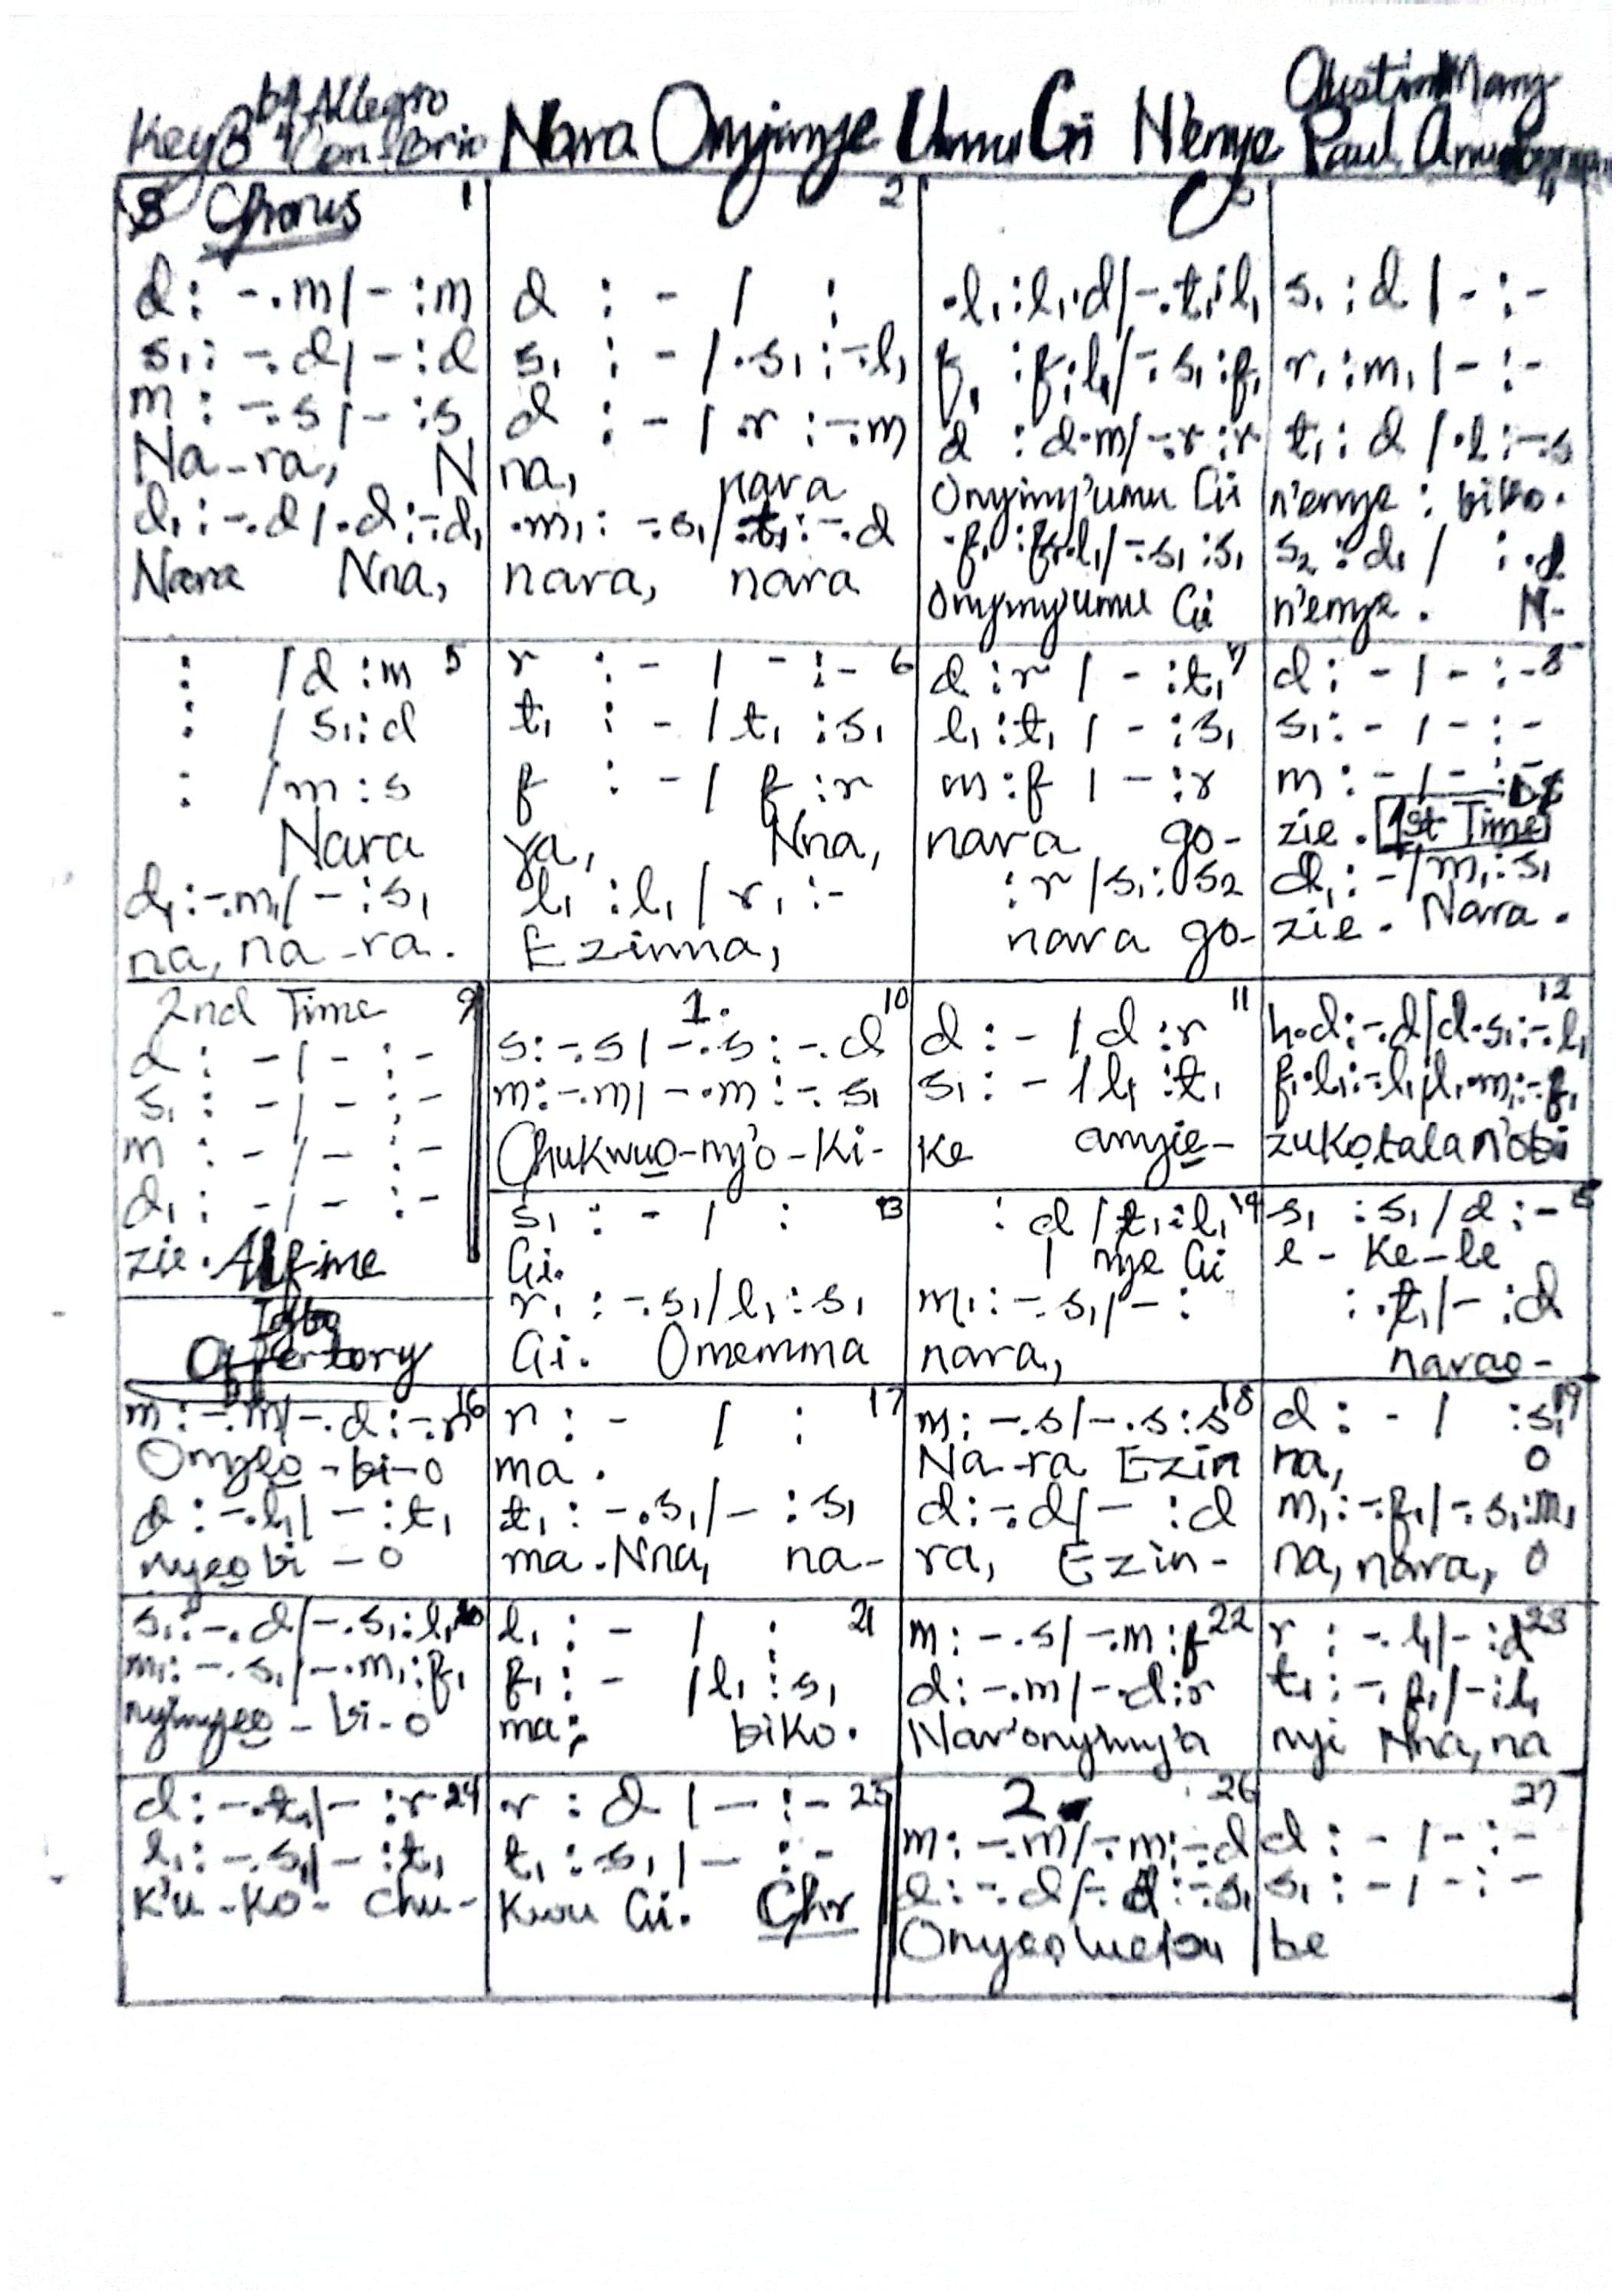 Key B♭ Allegro Con-Brio
Nara Onyinye Umu Gi N'enye
Austin Mary Paul
Chorus 1
d : -.m / - : m
s₁ : -.d / - : d
m : -.s / - : s
Na-ra, N
d₁ : -.d / .d : -.d₁
Nara Nna,
2
d : - / :
s₁ : - / .s₁ : -.l₁
d : - / .r : -.m
na, nara
.m₁ : -.s₁ / .t₁ : -.d
nara, nara
3
.l₁ : l₁.d / -.t₁ : l₁
f₁ : f₁.l₁ / -.s₁ : f₁
d : d.m / -.r : r
Onyiny'umu Gi
.f₁ : f₁.l₁ / -.s₁ : s₁
Onyinyumu Gi
4
s₁ : d / - : -
r₁ : m₁ / - : -
t₁ : d / .l : -.s
n'enye : biko.
s₂ : d₁ / : .d
n'enye. N-
5
: / d : m
: / s₁ : d
: / m : s
Nara
d₁ : -.m₁ / - : s₁
na, na-ra.
6
r : - / - : -
t₁ : - / t₁ : s₁
f : - / f : r
ya, Nna,
l₁ : l₁ / r₁ : -
Ezinna,
7
d : r / - : t₁
l₁ : t₁ / - : s₁
m : f / - : r
nara go-
: r / s₁ : s₂
nara go-
8
d : - / - : -
s₁ : - / - : -
m : - / - : -
zie. 1st Time
d₁ : - / m₁ : s₁
zie. Nara.
2nd Time 9
d : - / - : -
s₁ : - / - : -
m : - / - : -
d₁ : - / - : -
zie. Al fine
Igbo
Offertory
1. 10
s : -.s / -.s : -.d
m : -.m / -.m : -.s₁
Chukwuo-ny'o-ki-
11
d : - / d : r
s₁ : - / l₁ : t₁
ke anyie-
12
h.d : -.d / d.s₁ : -.l₁
f₁.l₁ : -.l₁ / l₁.m₁ : -.f₁
zukotala n'obi
13
s₁ : - / :
Gi.
r₁ : -.s₁ / l₁ : s₁
Gi. Omemma
14
: d / t₁ : l₁
I nye Gi
m₁ : -.s₁ / - :
nara,
15
s₁ : s₁ / d : -
e-ke-le
: .t₁ / - : d
narao-
16
m : -.m / -.d : -.r
Onyeo-bi-o
d : -.l₁ / - : t₁
nyeobi-o
17
r : - / :
ma.
t₁ : -.s₁ / - : s₁
ma. Nna, na-
18
m : -.s / -.s : s
Na-ra Ezin
d : -.d / - : d
ra, Ezin-
19
d : - / : s₁
na, O
m₁ : -.f₁ / -.s₁ : m₁
na, nara, O
20
s₁ : -.d / -.s₁ : l₁
m₁ : -.s₁ / -.m₁ : f₁
nyinyeo-bi-o
21
l₁ : - / :
f₁ : - / l₁ : s₁
ma; biko.
22
m : -.s / -.m : f
d : -.m / -.d : r
Nar'onyiny'a
23
r : -.l₁ / - : d
t₁ : -.f₁ / - : l₁
nyi Nna, na
24
d : -.t₁ / - : r
l₁ : -.s₁ / - : t₁
k'u-ko-chu-
25
r : d / - : -
t₁ : s₁ / - : -
kwu Gi. Chr
2. 26
m : -.m / -.m : -.d
d : -.d / -.d : -.s₁
27
d : - / - : -
s₁ : - / - : -
be